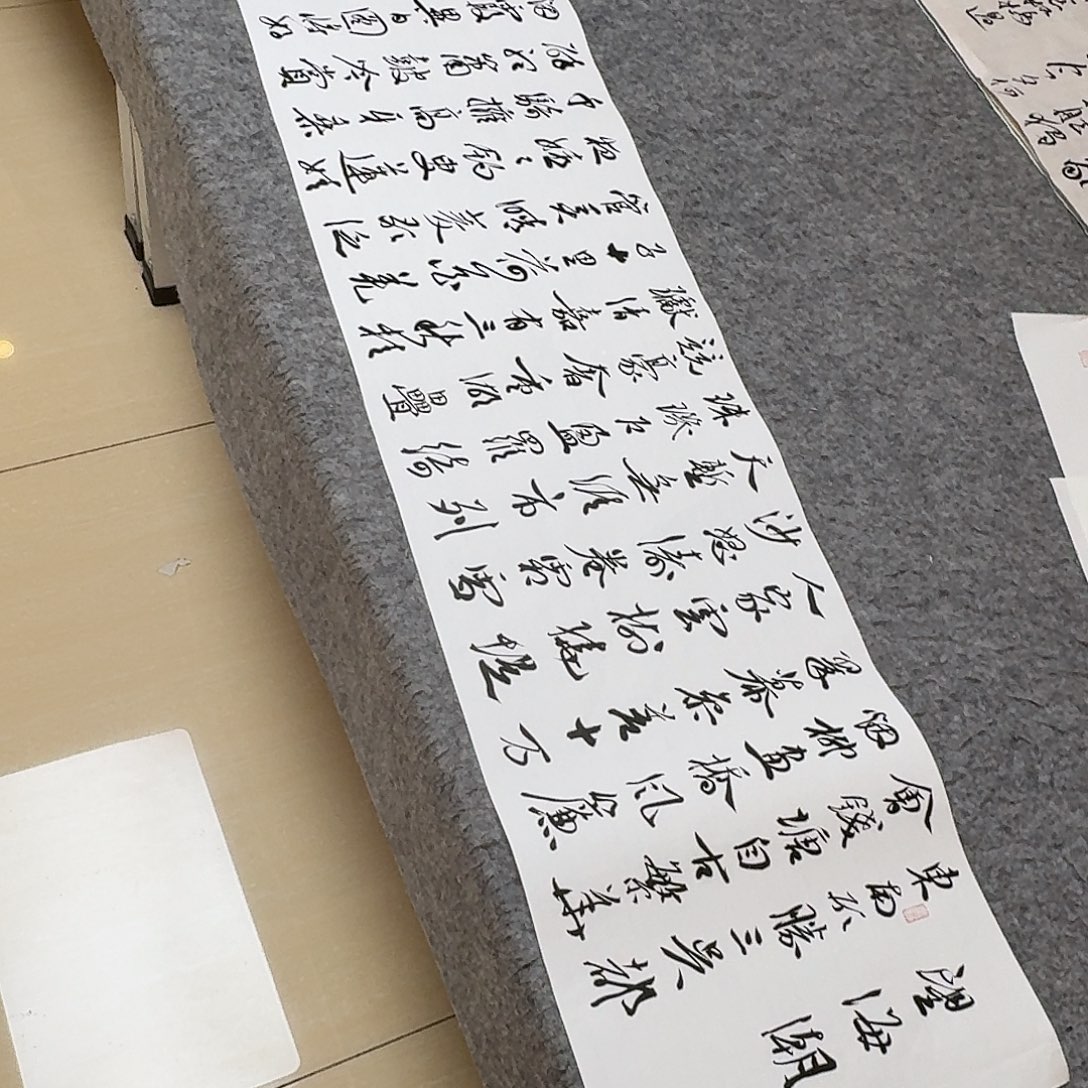 望海潮
東南形勝三吳都
會錢塘自古繁華
烟柳畫橋風簾
翠幕參差十万
人家雲樹繞堤
沙怒濤卷霜雪
天塹無涯市列
珠璣户盈羅綺
競豪奢重湖疊
巘清嘉有三秋桂
子十里荷花羌
管弄晴菱歌泛
夜嬉〻釣叟蓮娃
千騎擁高牙乘
醉聽簫鼓吟賞
烟霞異日圖將好